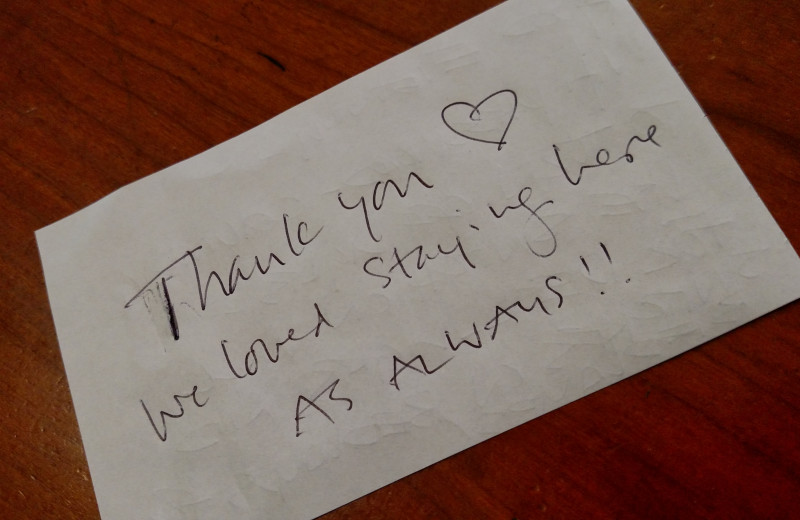 Thank you ♡
We loved staying here
AS ALWAYS!!